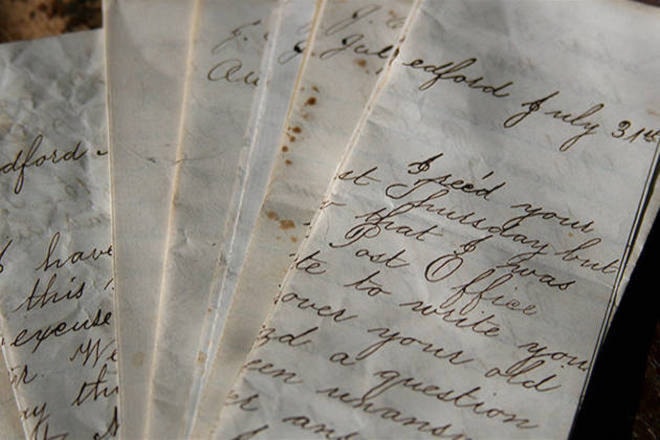 dford
I have
this
excuse
r. We
ay thi
J.
Au
J. J.
Jul
edford July 31st
I rec'd your
st Thursday but
that I was
Post Office
te to write you
over your old
d a question
een unansw
er